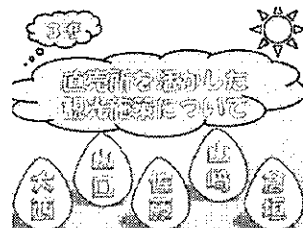 3年
直売所を活かした
観光施策について
大西
山口
佐野
山崎